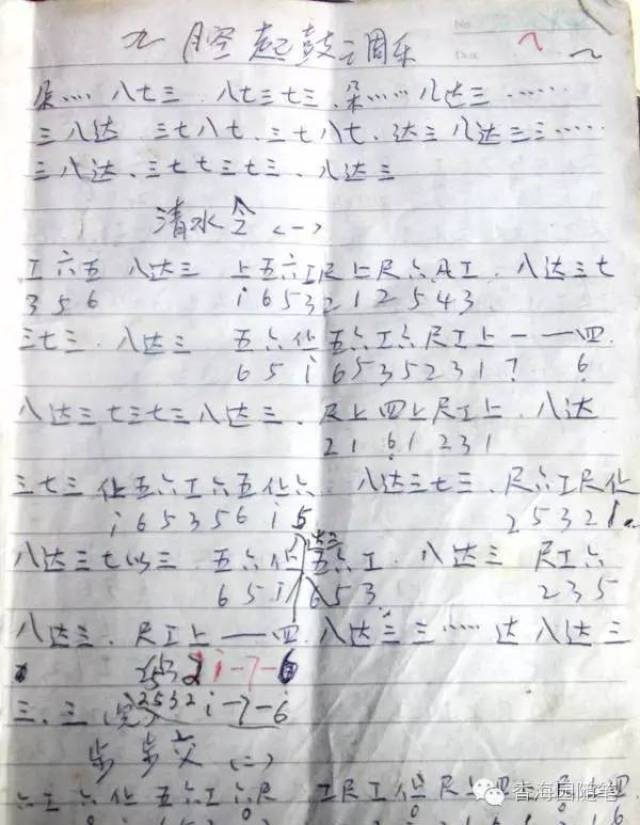 九腔起鼓三周乐
朵…… 八七三. 八七三七三. 朵…… 八达三 ……
三八达. 三七八七. 三七八七. 达三八达三三……
三八达. 三七七三七三. 八达三
清水令 (一)
工六五 八达三 上五六工尺上尺六凡工. 八达三七
3 5 6 i 6 5 3 2 1 2 5 4 3
三七三. 八达三 五六仩五六工六尺工上一一四.
6 5 i 6 5 3 5 2 3 1 7 6
八达三七三七三八达三. 尺上四上尺工上. 八达
2 1 6 1 2 3 1
三七三 仩五六工六五仩六 八达三七三. 尺六工尺仩
i 6 5 3 5 6 i 5 2 5 3 2 1
八达三七 三 五六仩五六工. 八达三 尺工六
6 5 i 6 5 3 2 3 5
八达三. 尺工上一一四. 八达三三…… 达八达三
i-7-6
三. 三 (完) 2532 i-7-6
步步交 (二)
六工六仩五六工六尺 工尺工仩尺上四
No
香海园随笔